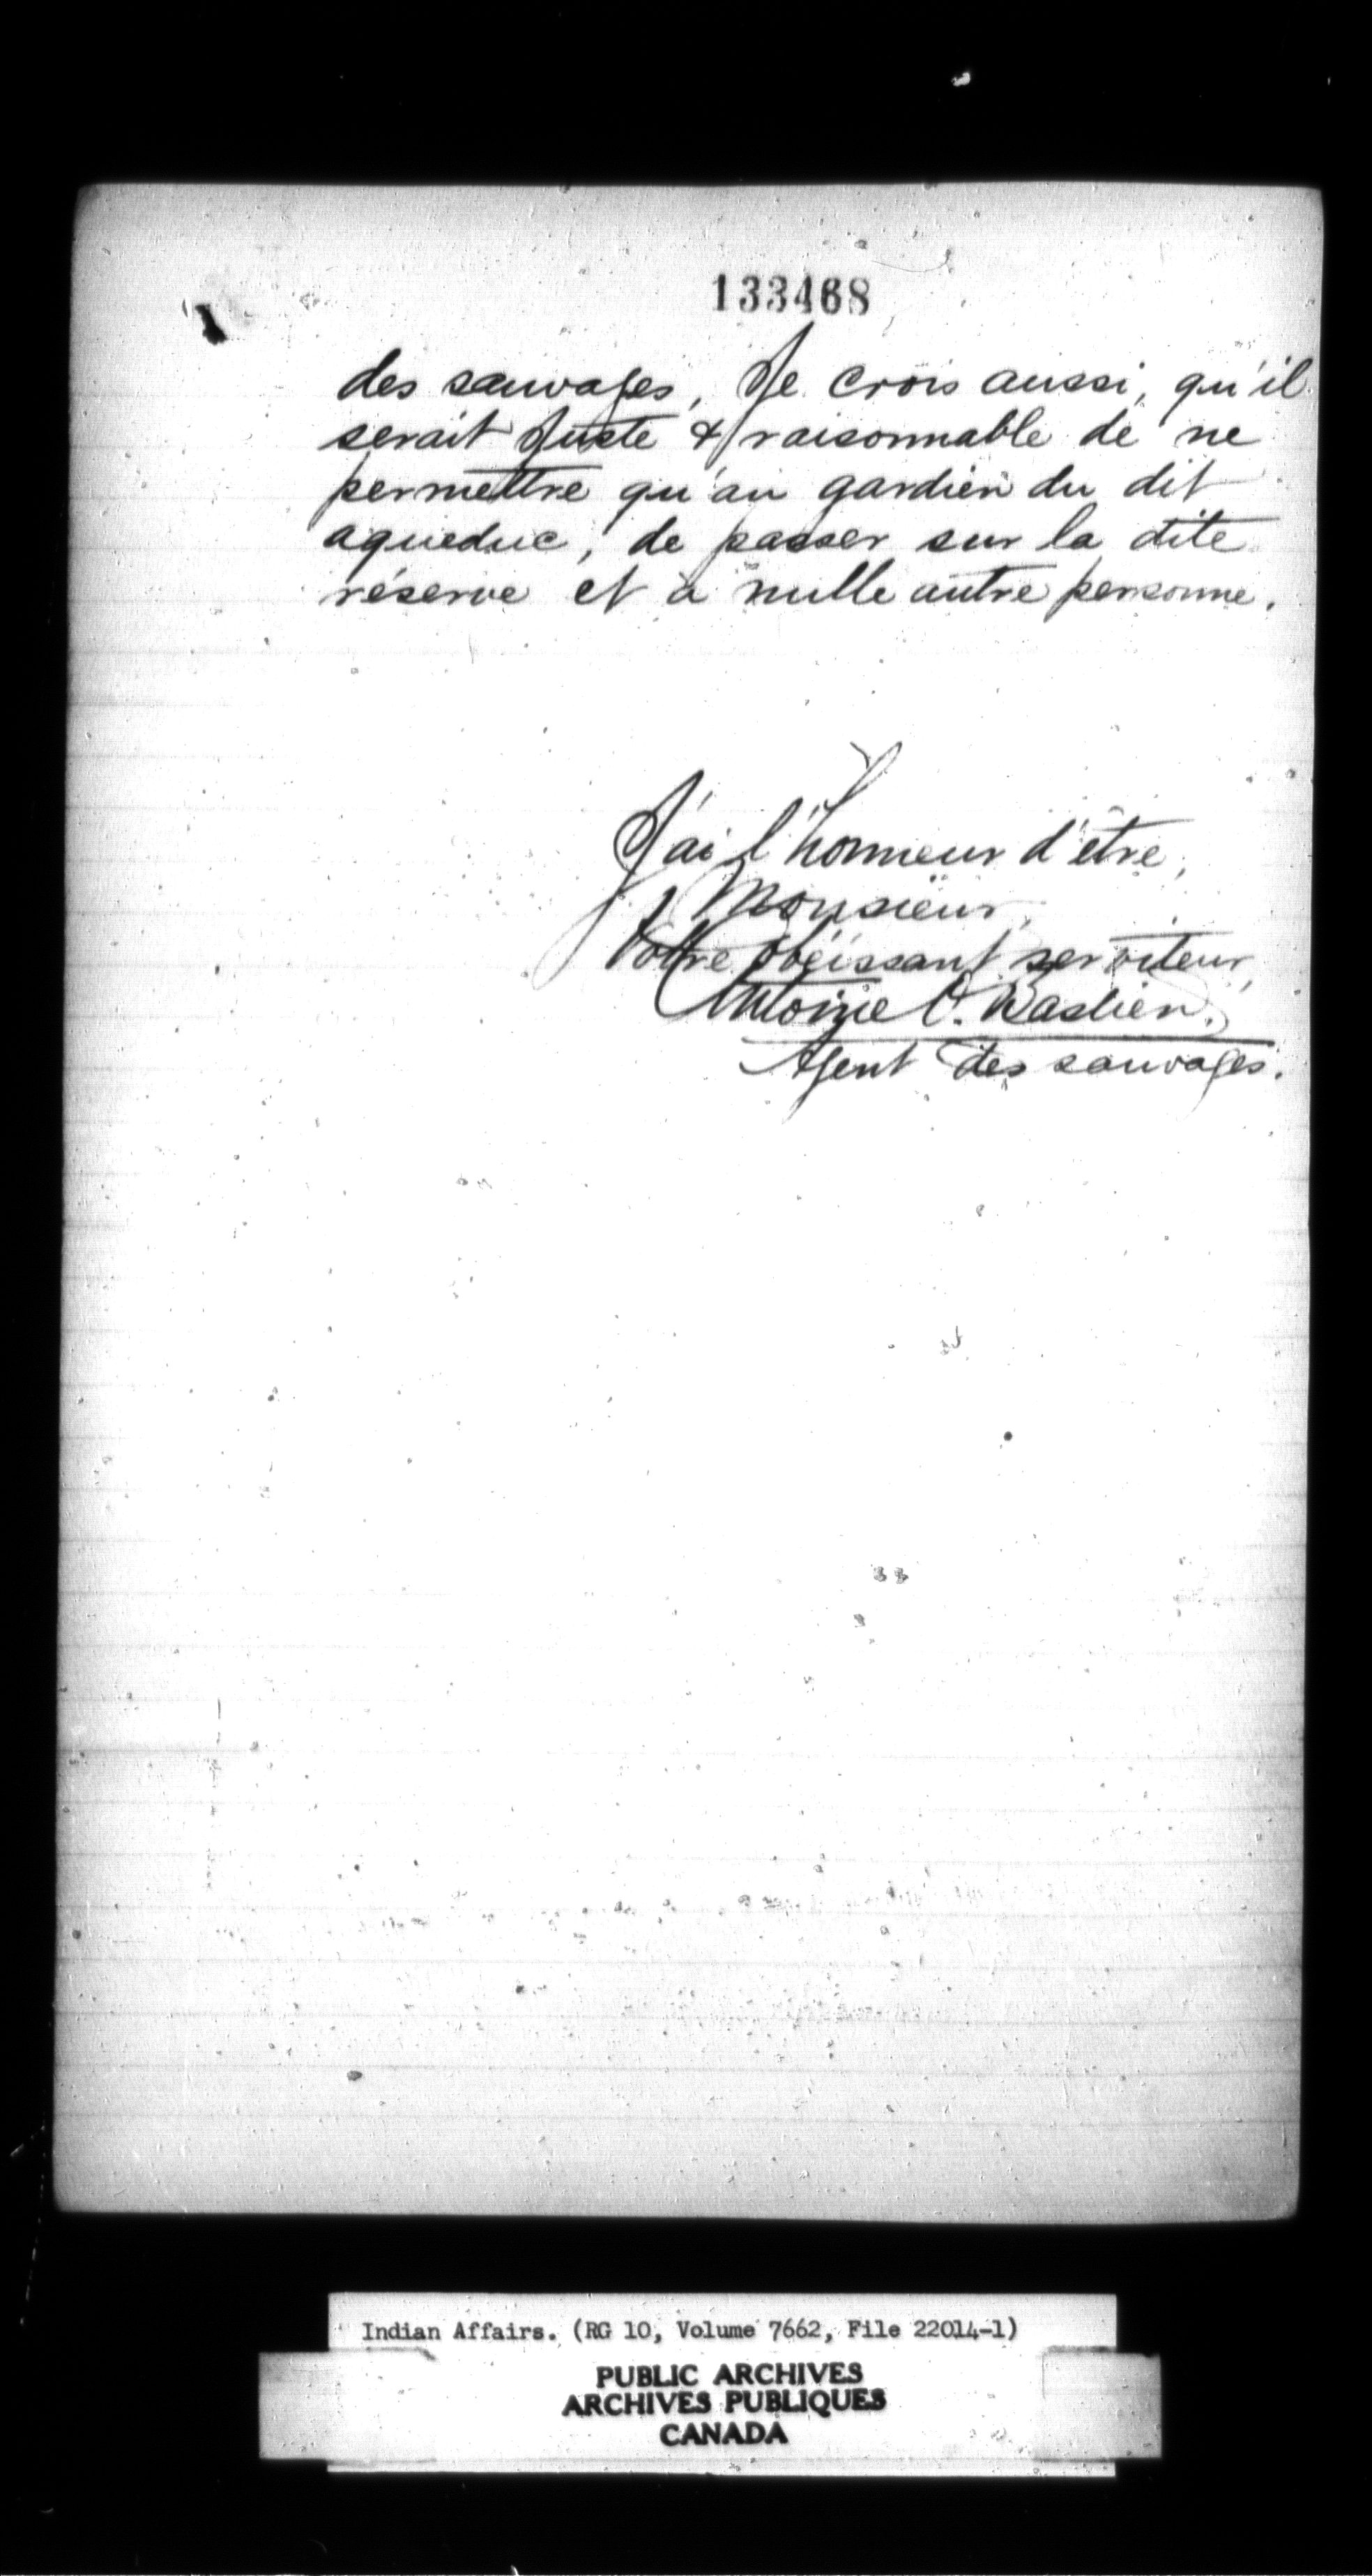 133468
des sauvages, Je crois aussi, qu'il
serait Juste & raisonnable de ne
permettre qu'au gardien du dit
aqueduc, de passer sur la dite
réserve et à nulle autre personne.
J'ai l'honneur d'être,
Monsieur,
Votre obéissant serviteur,
Antoine O. Bastien.
Agent des sauvages.
Indian Affairs. (RG 10, Volume 7662, File 22014-1)
PUBLIC ARCHIVES
ARCHIVES PUBLIQUES
CANADA